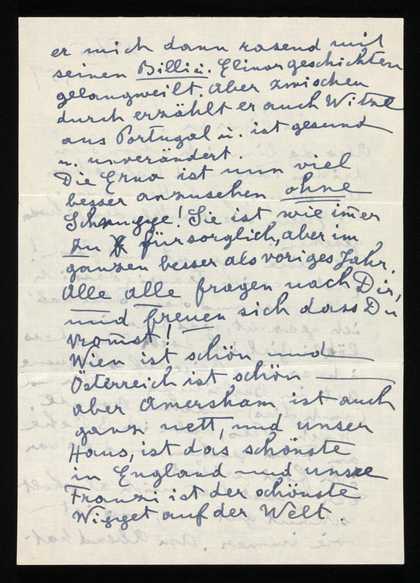 er mich dann rasend mit
seinen Billi u. Elinorgeschichten
gelangweilt. Aber zwischen
durch erzählt er auch Witze
aus Portugal u. ist gesund
u. unverändert.
Die Erna ist nun viel
besser anzusehen ohne
Schnugge! Sie ist wie im̄er
zu fürsorglich, aber im
ganzen besser als voriges Jahr.
Alle alle fragen nach Dir,
und freuen sich dass Du
kommst!
Wien ist schön und
Österreich ist schön
aber Amersham ist auch
ganz nett, und unser
Haus, ist das schönste
in England und unsre
Franzi ist der schönste
Wigget auf der Welt.